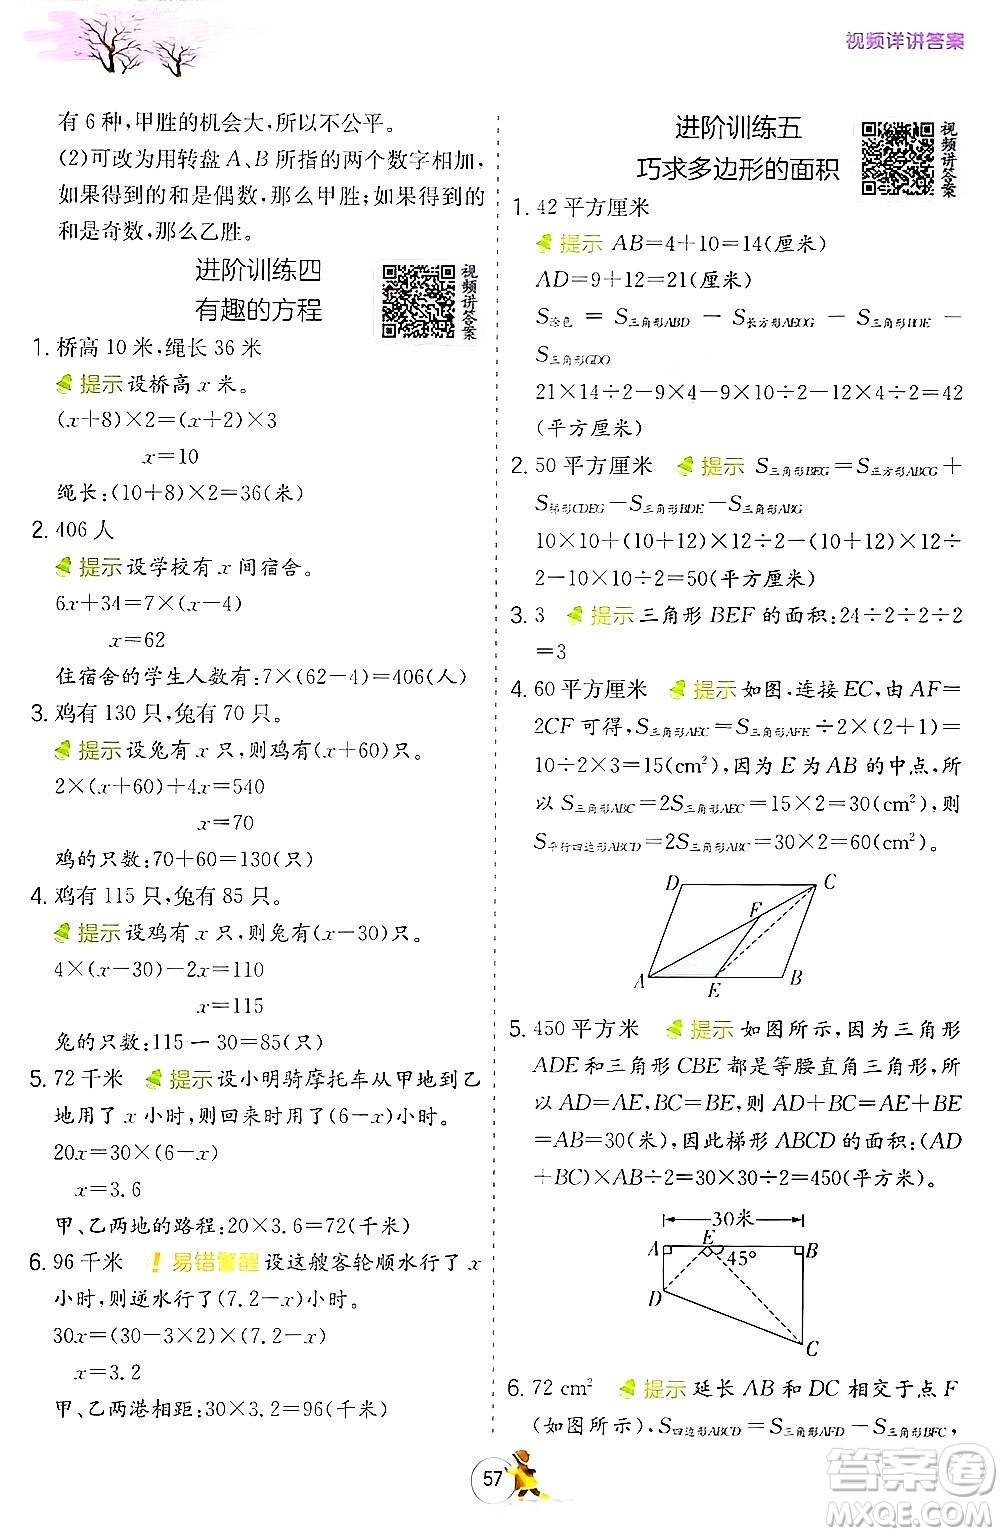 视频详讲答案
有 6 种,甲胜的机会大,所以不公平。
(2)可改为用转盘 A、B 所指的两个数字相加,
如果得到的和是偶数,那么甲胜;如果得到的
和是奇数,那么乙胜。
进阶训练四
有趣的方程
视频讲答案
1. 桥高 10 米,绳长 36 米
提示 设桥高 x 米。
(x+8)×2=(x+2)×3
x=10
绳长:(10+8)×2=36(米)
2. 406 人
提示 设学校有 x 间宿舍。
6x+34=7×(x-4)
x=62
住宿舍的学生人数有:7×(62-4)=406(人)
3. 鸡有 130 只,兔有 70 只。
提示 设兔有 x 只,则鸡有(x+60)只。
2×(x+60)+4x=540
x=70
鸡的只数:70+60=130(只)
4. 鸡有 115 只,兔有 85 只。
提示 设鸡有 x 只,则兔有(x-30)只。
4×(x-30)-2x=110
x=115
兔的只数:115-30=85(只)
5. 72 千米 提示 设小明骑摩托车从甲地到乙
地用了 x 小时,则回来时用了(6-x)小时。
20x=30×(6-x)
x=3.6
甲、乙两地的路程:20×3.6=72(千米)
6. 96 千米 易错警醒 设这艘客轮顺水行了 x
小时,则逆水行了(7.2-x)小时。
30x=(30-3×2)×(7.2-x)
x=3.2
甲、乙两港相距:30×3.2=96(千米)
进阶训练五
巧求多边形的面积
视频讲答案
1. 42 平方厘米
提示 AB=4+10=14(厘米)
AD=9+12=21(厘米)
S涂色 = S三角形ABD - S长方形AEOG - S三角形BOE -
S三角形GDO
21×14÷2-9×4-9×10÷2-12×4÷2=42
(平方厘米)
2. 50 平方厘米 提示 S三角形BEG=S正方形ABCG+
S梯形CDEG-S三角形BDE-S三角形ABG
10×10+(10+12)×12÷2-(10+12)×12÷
2-10×10÷2=50(平方厘米)
3. 3 提示 三角形 BEF 的面积:24÷2÷2÷2
=3
4. 60 平方厘米 提示 如图,连接 EC,由 AF=
2CF 可得,S三角形AEC=S三角形AFE÷2×(2+1)=
10÷2×3=15(cm²),因为 E 为 AB 的中点,所
以 S三角形ABC=2S三角形AEC=15×2=30(cm²),则
S平行四边形ABCD=2S三角形ABC=30×2=60(cm²)。
D C
F
A E B
5. 450 平方米 提示 如图所示,因为三角形
ADE 和三角形 CBE 都是等腰直角三角形,所
以 AD=AE,BC=BE,则 AD+BC=AE+BE
=AB=30(米),因此梯形 ABCD 的面积:(AD
+BC)×AB÷2=30×30÷2=450(平方米)。
30米
A E B
45°
D
C
6. 72 cm² 提示 延长 AB 和 DC 相交于点 F
(如图所示),S四边形ABCD=S三角形AFD-S三角形BFC,
57
答案圈
MXQE.COM